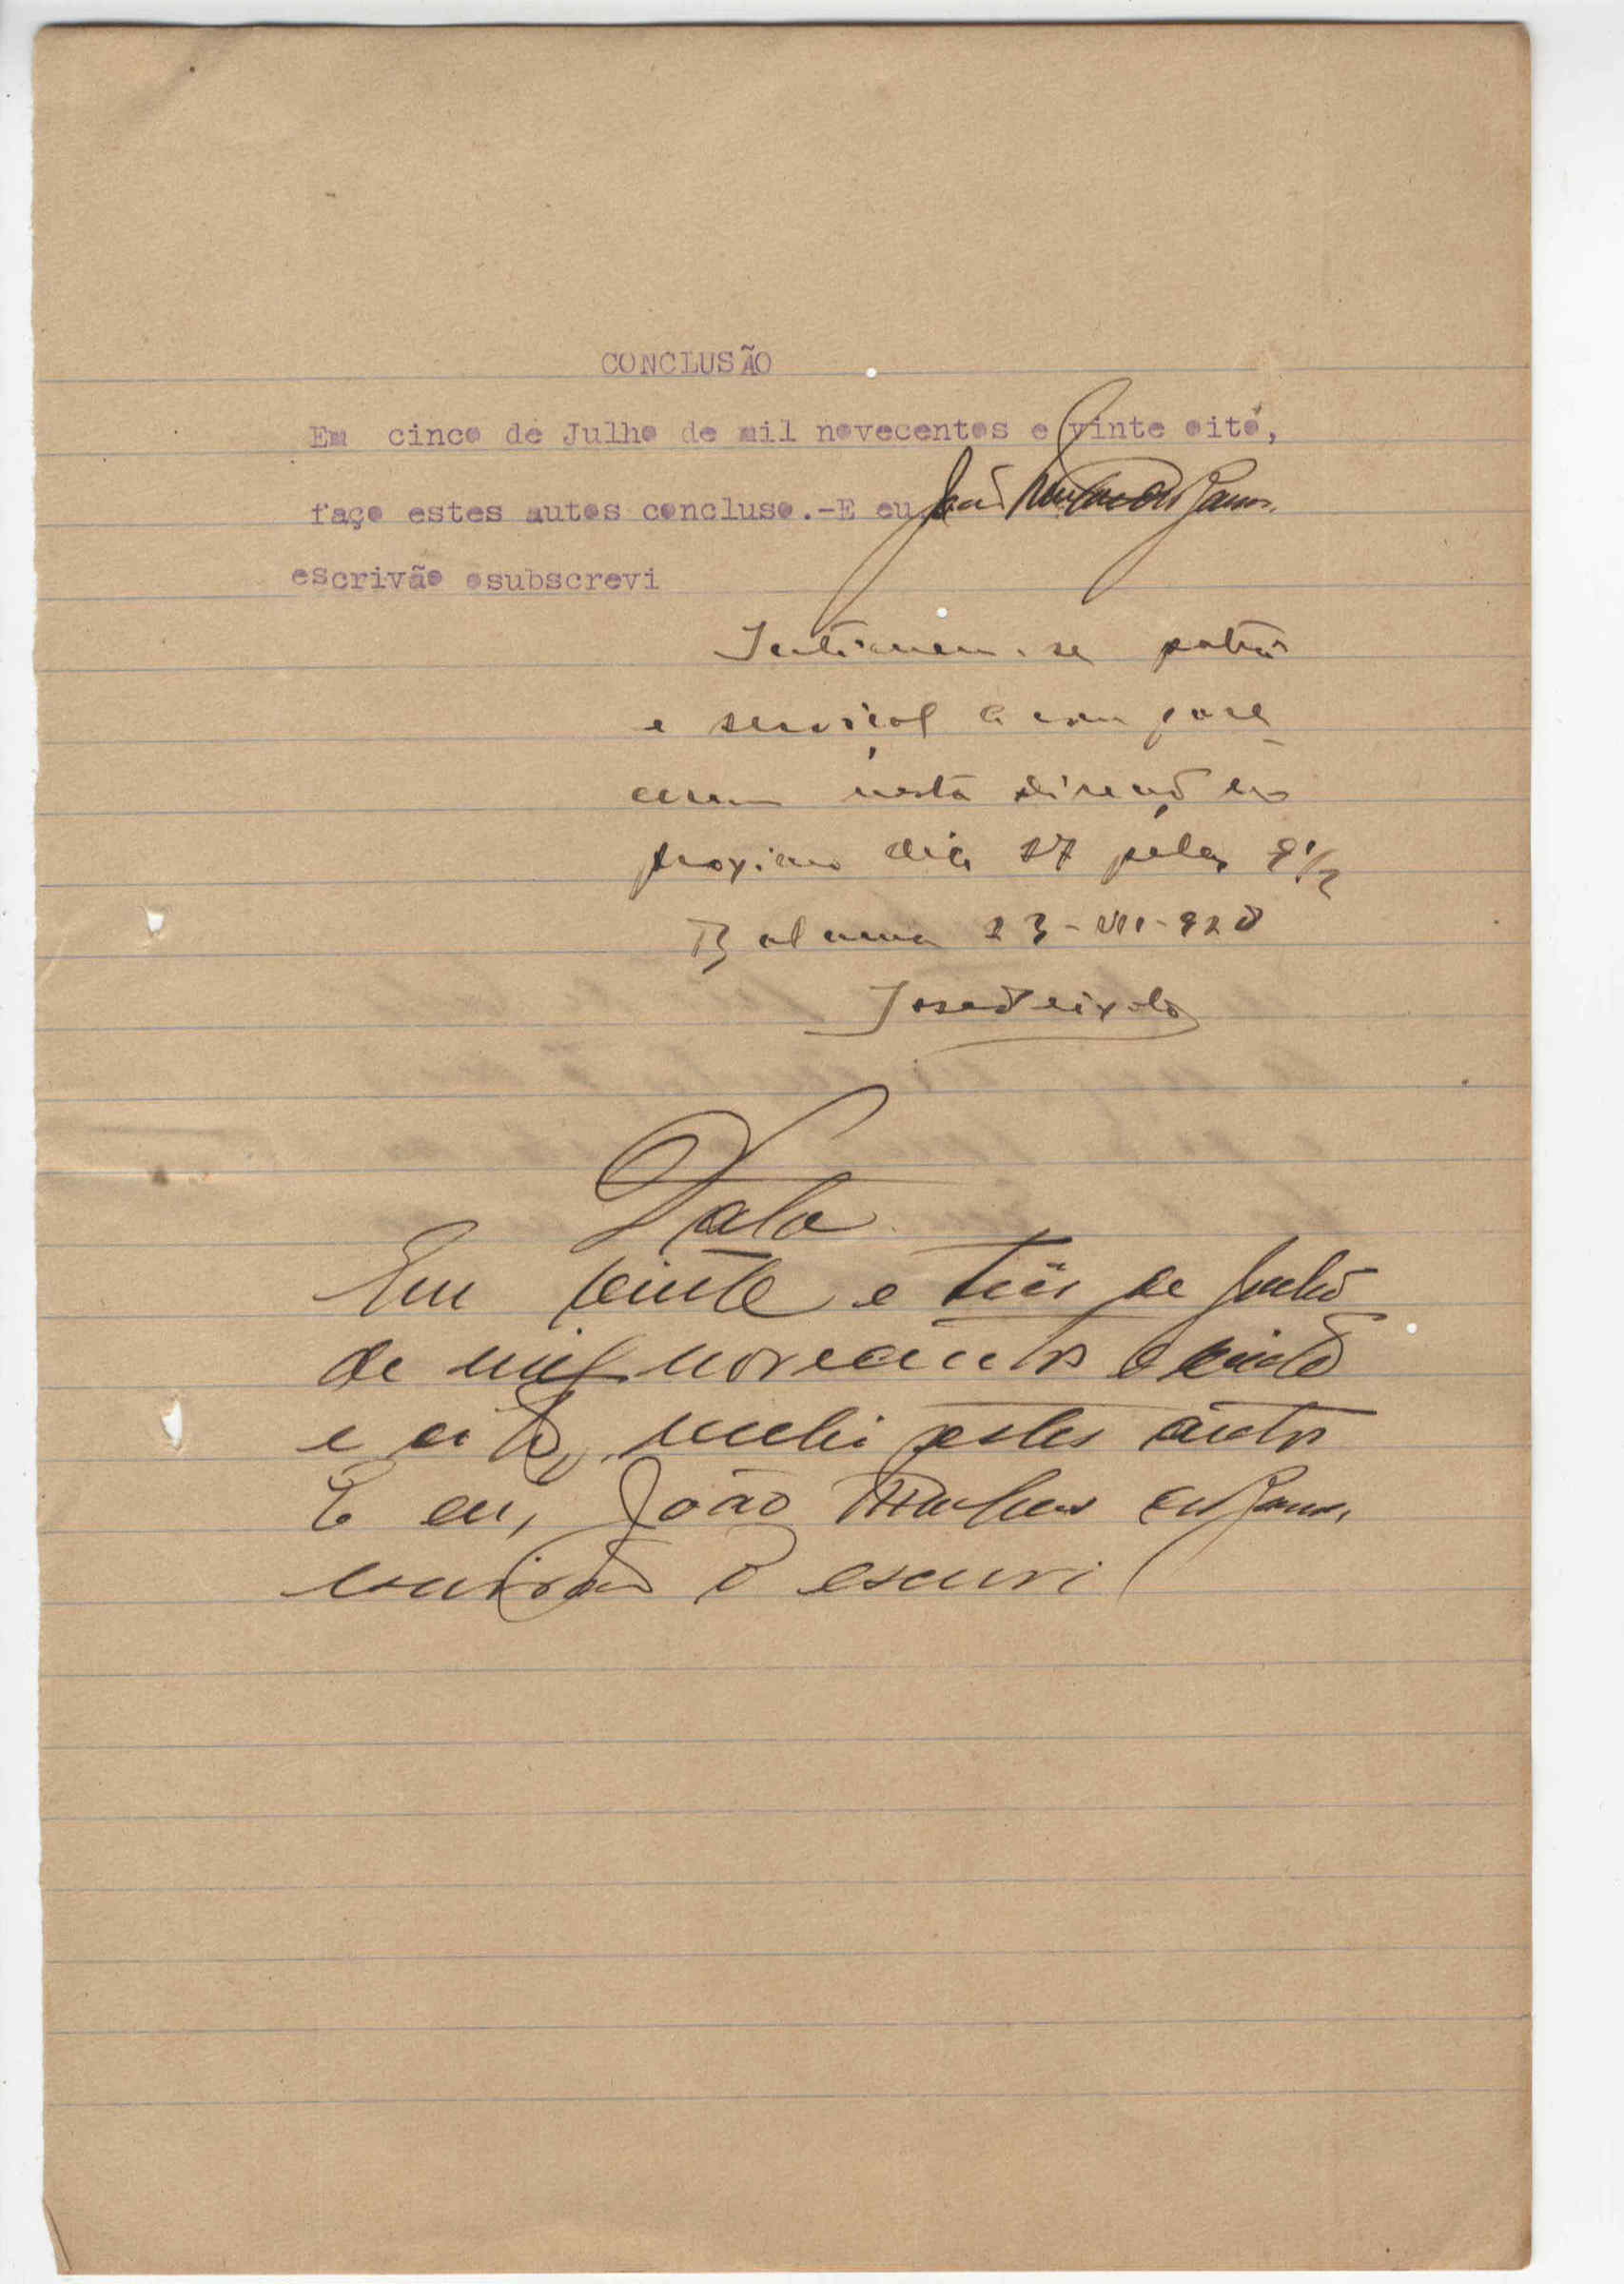 CONCLUSÃO
Em cinco de Julho de mil novecentos e vinte oito,
faço estes autos concluso.-E eu João
escrivão osubscrevi
Intimem-se patrão
e serviçal a compare
cerem nesta direcção no
proximo dia 27 pelas 9 1/2
Bolama 23-VII-928
José Peixoto
Data
Em vinte e três de Julho
de mil novecentos e vinte
e oito, recebi estes autos
E eu, João Ramos,
escrivão o escrevi